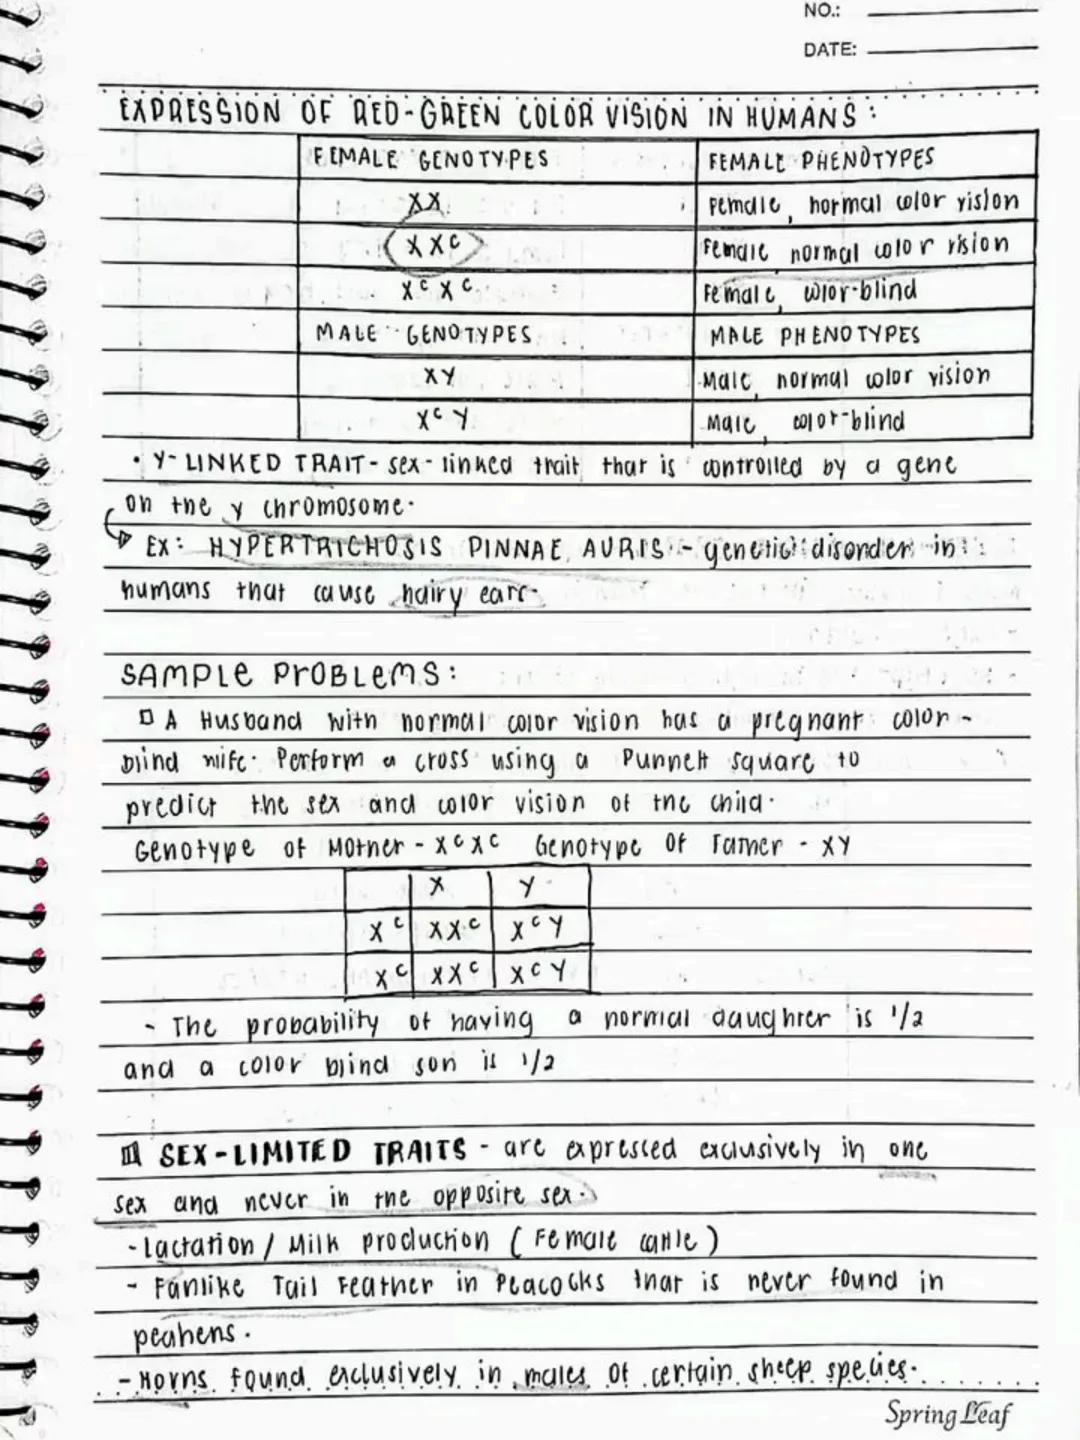 NO.:
DATE:
EXPRESSION OF RED-GREEN COLOR VISION IN HUMANS:
FEMALE GENOTYPES FEMALE PHENOTYPES
XX Female, normal color vision
XXᶜ Female, normal color vision
XᶜXᶜ Female, color-blind
MALE GENOTYPES MALE PHENOTYPES
XY Male, normal color vision
XᶜY Male, color-blind
• Y-LINKED TRAIT - sex-linked trait that is controlled by a gene
on the y chromosome.
Ex: HYPERTRICHOSIS PINNAE AURIS - genetic disorder in
humans that cause hairy ears.
SAMPLE PROBLEMS:
A Husband with normal color vision has a pregnant color-
blind wife. Perform a cross using a Punnett square to
predict the sex and color vision of the child.
Genotype of Mother - XᶜXᶜ Genotype of Father - XY
X Y
Xᶜ XXᶜ XᶜY
Xᶜ XXᶜ XᶜY
- The probability of having a normal daughter is 1/2
and a color blind son is 1/2
SEX-LIMITED TRAITS - are expressed exclusively in one
sex and never in the opposite sex.
- Lactation / Milk production (Female cattle)
- Fanlike Tail Feather in Peacocks that is never found in
peahens.
- Horns found exclusively in males of certain sheep species.
Spring Leaf